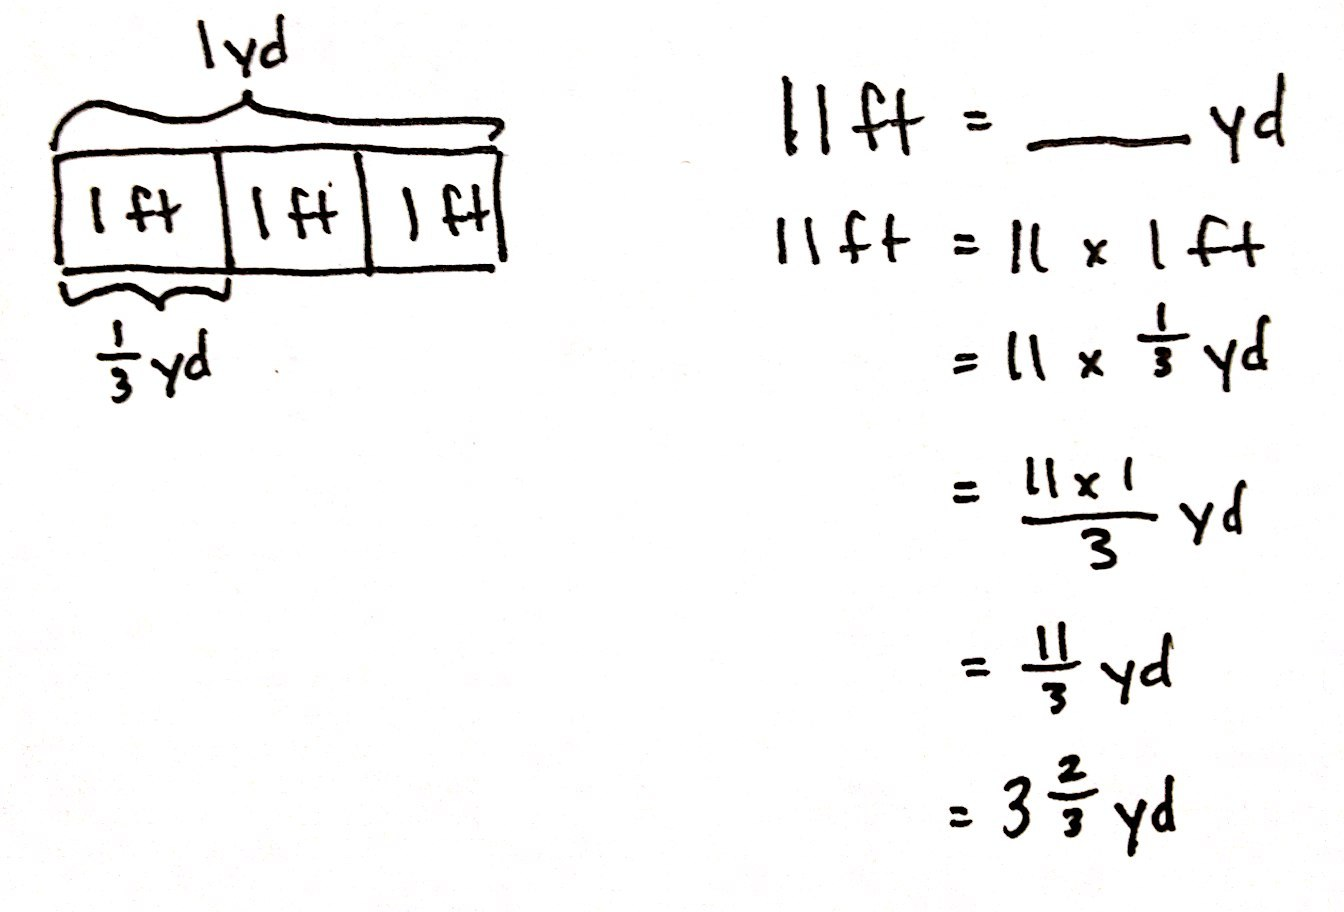 1 yd
1 ft 1 ft 1 ft
1/3 yd
11 ft = ___ yd
11 ft = 11 x 1 ft
= 11 x 1/3 yd
= 11 x 1 / 3 yd
= 11/3 yd
= 3 2/3 yd